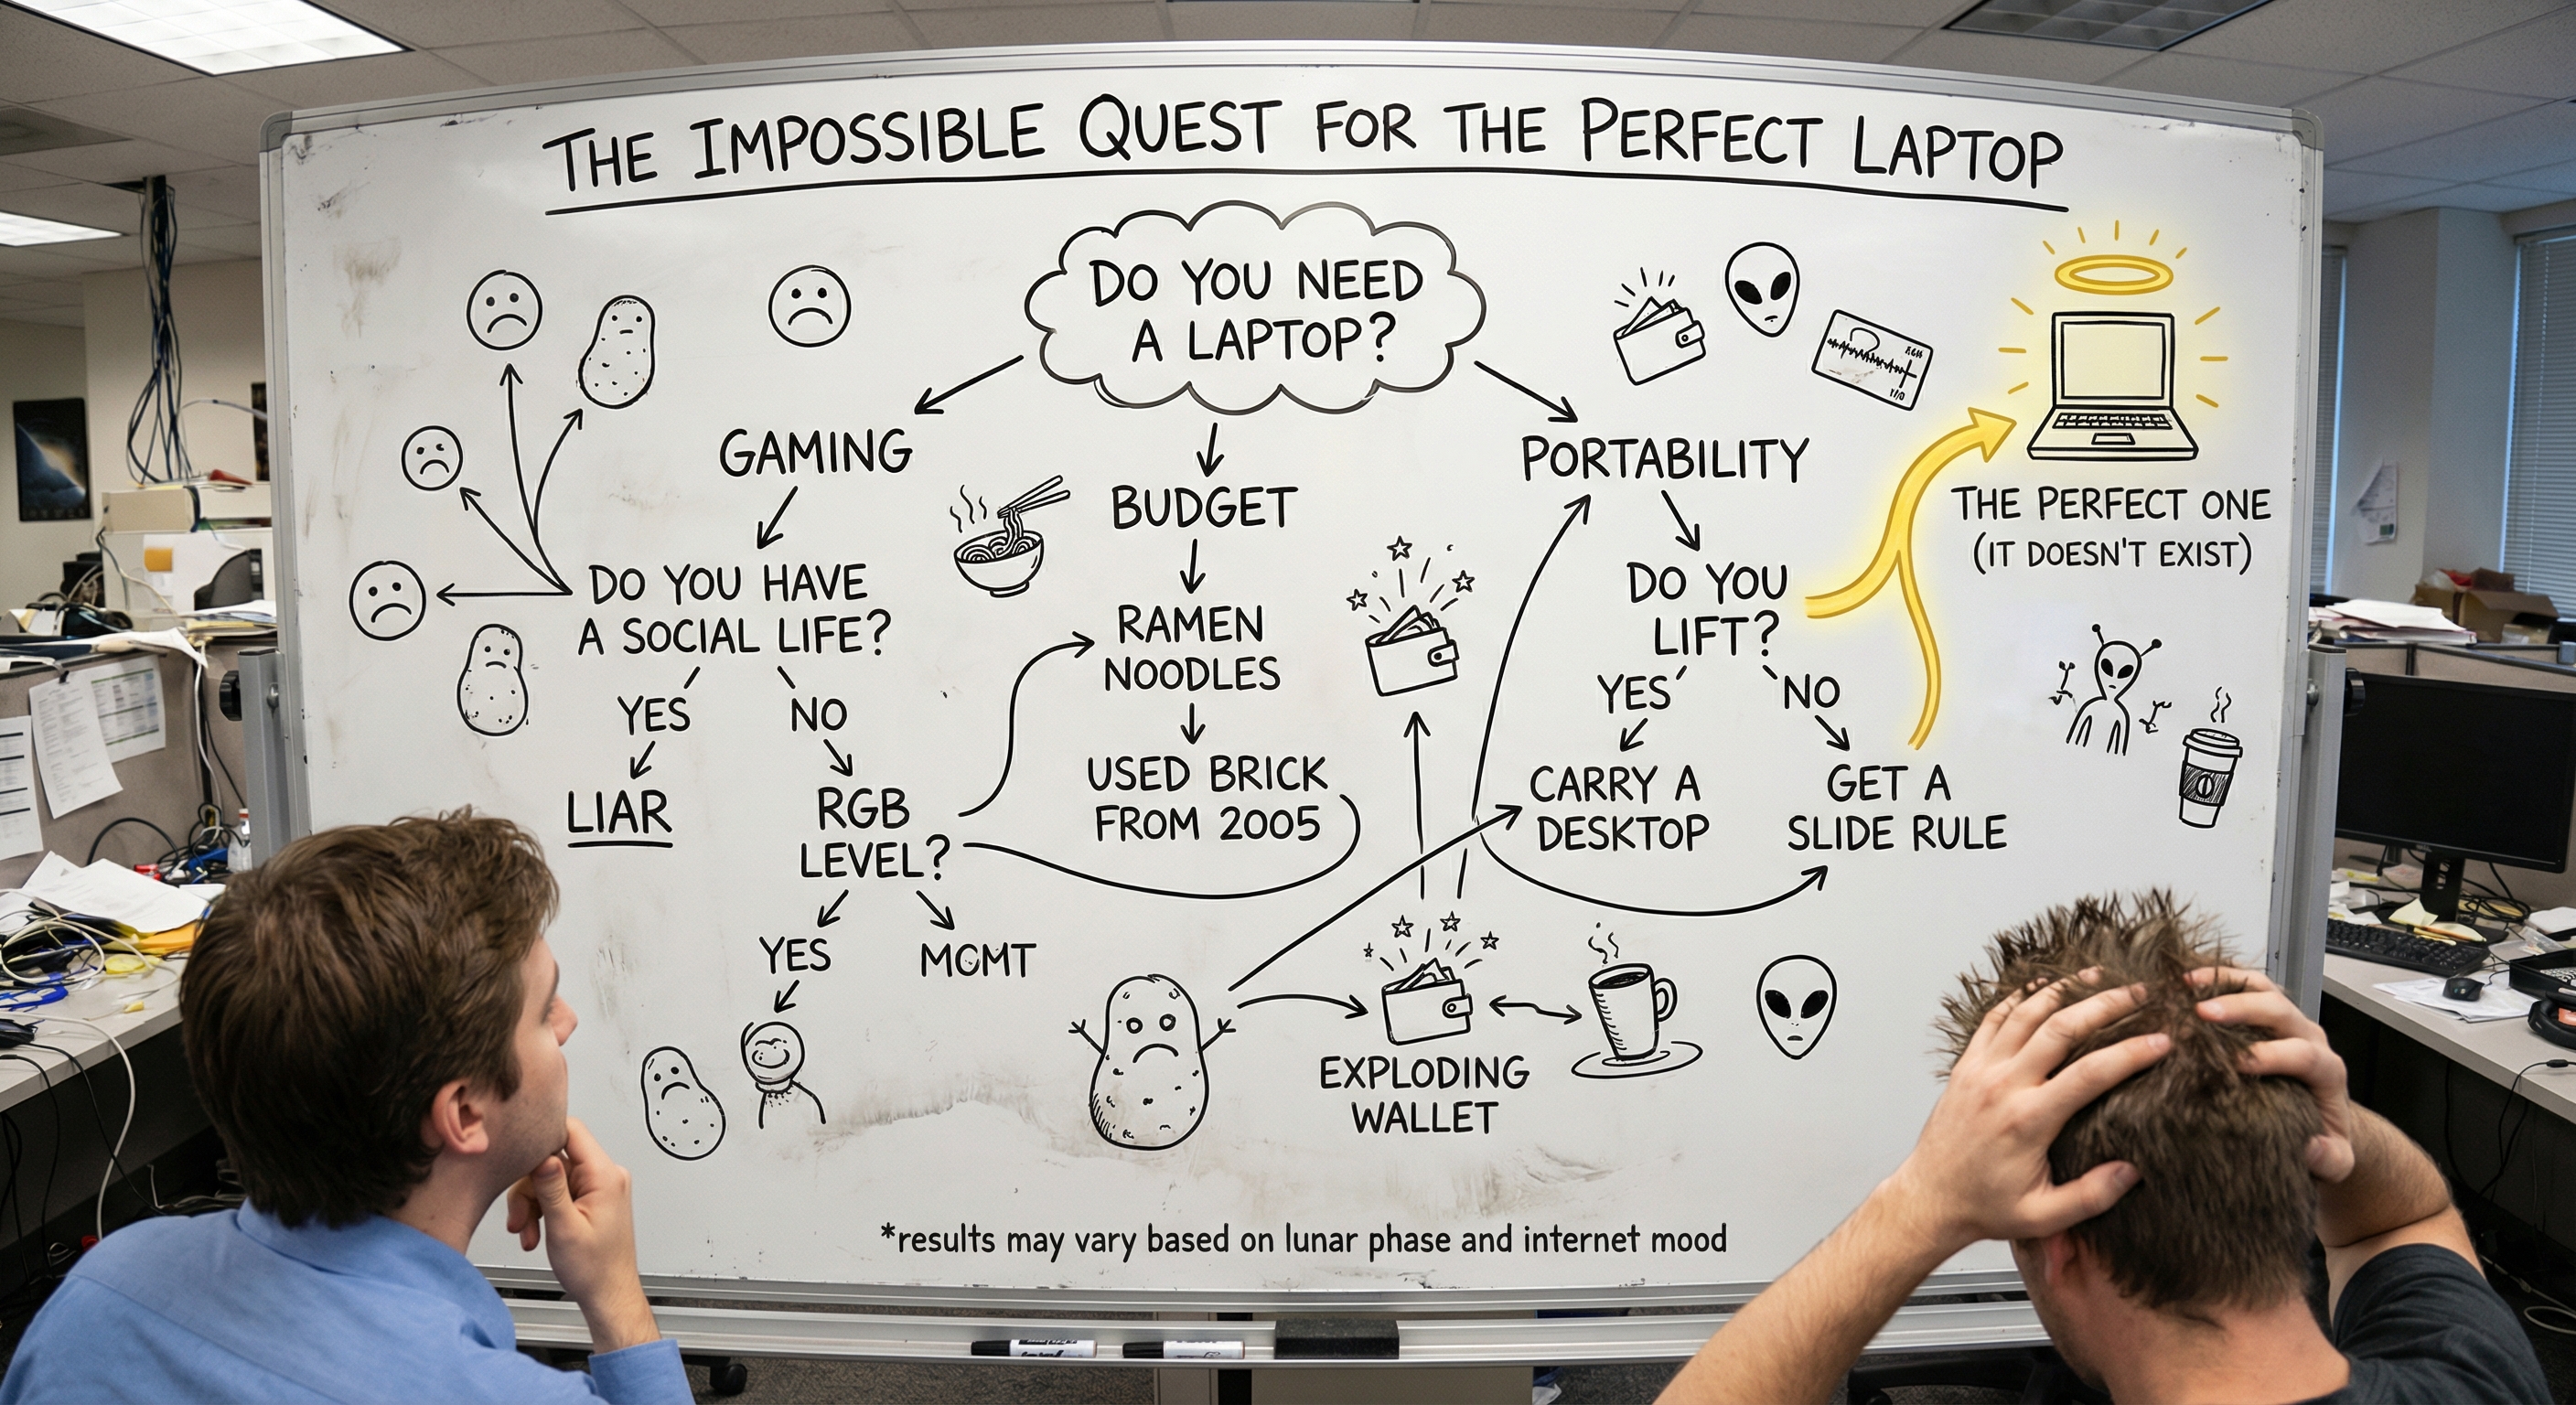 THE IMPOSSIBLE QUEST FOR THE PERFECT LAPTOP
DO YOU NEED
A LAPTOP?
GAMING
DO YOU HAVE
A SOCIAL LIFE?
YES
NO
LIAR
RGB
LEVEL?
YES
MGMT
BUDGET
RAMEN
NOODLES
USED BRICK
FROM 2005
PORTABILITY
DO YOU
LIFT?
YES
NO
CARRY A
DESKTOP
GET A
SLIDE RULE
THE PERFECT ONE
(IT DOESN'T EXIST)
EXPLODING
WALLET
*results may vary based on lunar phase and internet mood